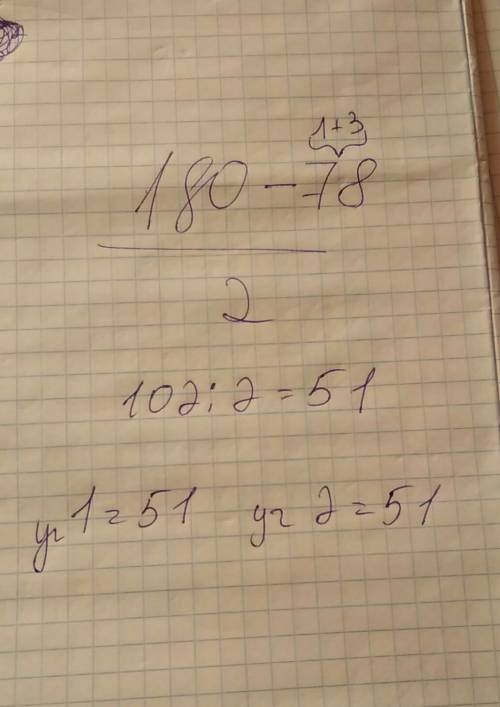 1+3
180-78
2
102:2=51
уг 1=51 уг 2=51